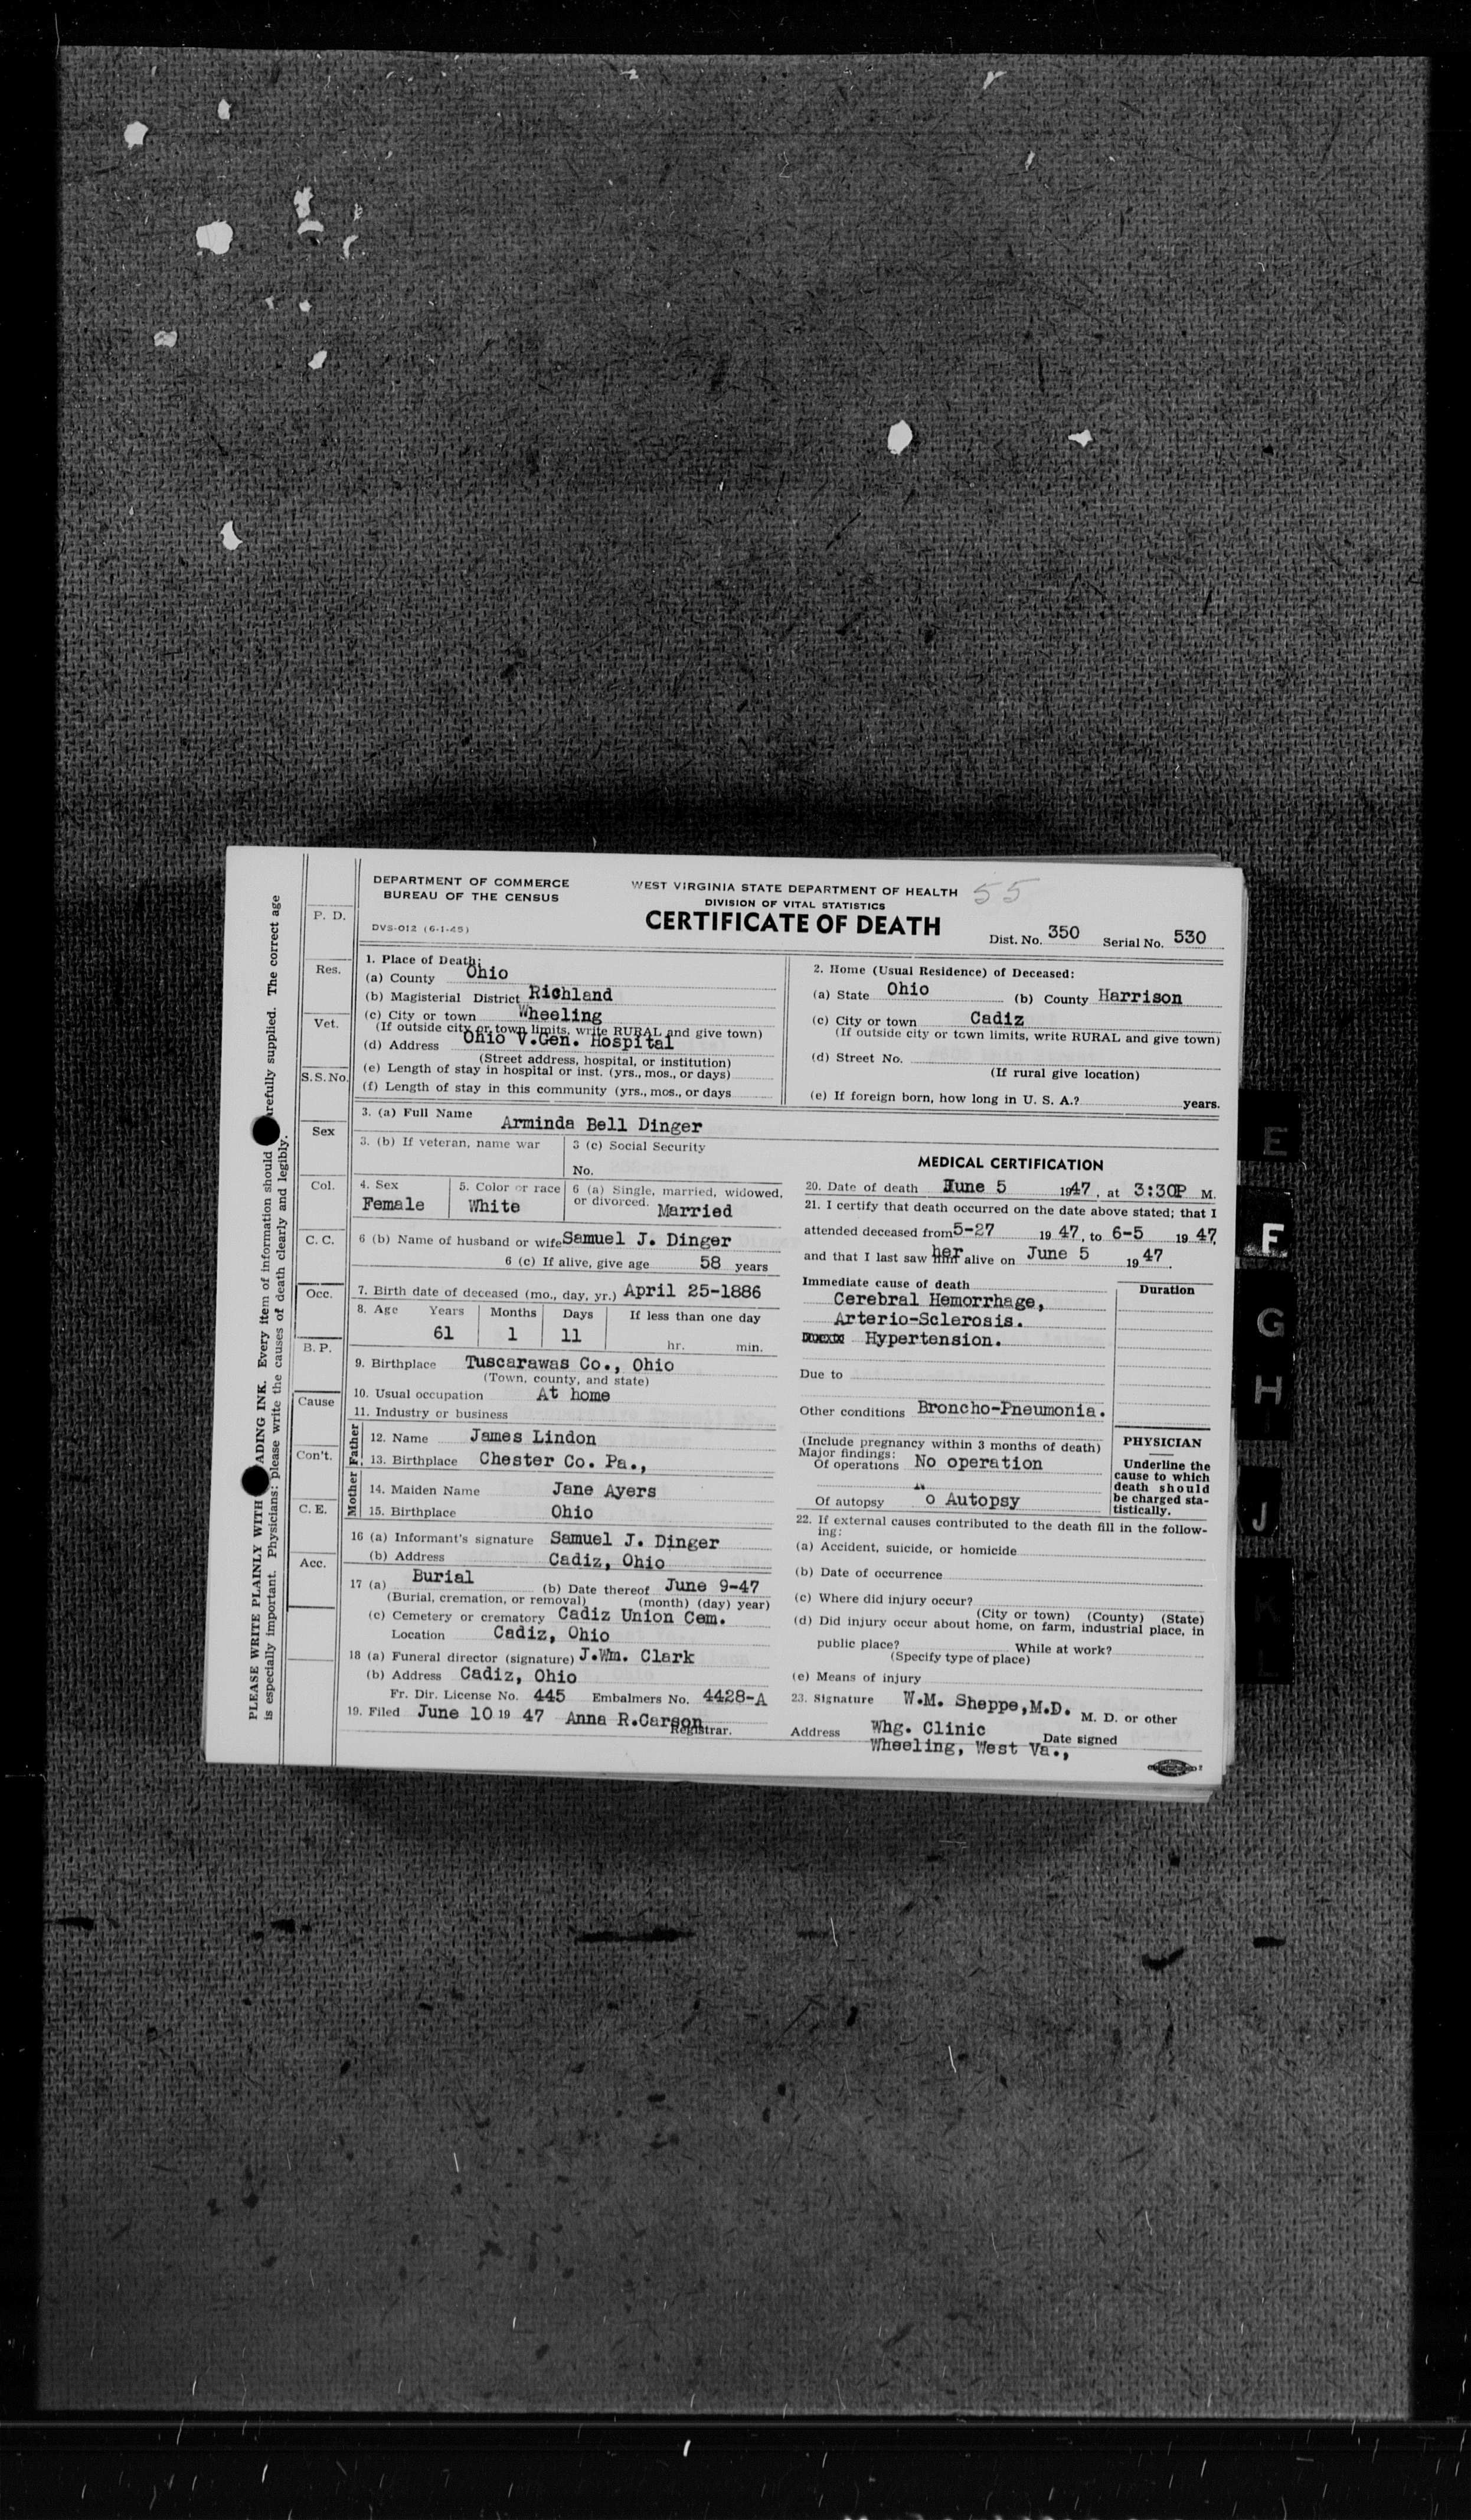 DEPARTMENT OF COMMERCE
BUREAU OF THE CENSUS
DVS-012 (6-1-45)
WEST VIRGINIA STATE DEPARTMENT OF HEALTH 55
DIVISION OF VITAL STATISTICS
CERTIFICATE OF DEATH
Dist. No. 350 Serial No. 530
PLEASE WRITE PLAINLY WITH ADING INK. Every item of information should arefully supplied. The correct age
is especially important. Physicians: please write the causes of death clearly and legibly.
P. D.
Res.
Vet.
S. S. No.
Sex
Col.
C. C.
Occ.
B. P.
Cause
Con't.
C. E.
Acc.
1. Place of Death:
(a) County Ohio
(b) Magisterial District Richland
(c) City or town Wheeling
(If outside city or town limits, write RURAL and give town)
(d) Address Ohio V.Gen. Hospital
(Street address, hospital, or institution)
(e) Length of stay in hospital or inst. (yrs., mos., or days)
(f) Length of stay in this community (yrs., mos., or days
2. Home (Usual Residence) of Deceased:
(a) State Ohio (b) County Harrison
(c) City or town Cadiz
(If outside city or town limits, write RURAL and give town)
(d) Street No.
(If rural give location)
(e) If foreign born, how long in U. S. A.? years.
3. (a) Full Name Arminda Bell Dinger
3. (b) If veteran, name war
3 (c) Social Security
No.
4. Sex Female
5. Color or race White
6 (a) Single, married, widowed,
or divorced. Married
6 (b) Name of husband or wife Samuel J. Dinger
6 (c) If alive, give age 58 years
7. Birth date of deceased (mo., day, yr.) April 25-1886
8. Age Years Months Days If less than one day
61 1 11 hr. min.
9. Birthplace Tuscarawas Co., Ohio
(Town, county, and state)
10. Usual occupation At home
11. Industry or business
Father
12. Name James Lindon
13. Birthplace Chester Co. Pa.,
Mother
14. Maiden Name Jane Ayers
15. Birthplace Ohio
16 (a) Informant's signature Samuel J. Dinger
(b) Address Cadiz, Ohio
17 (a) Burial (b) Date thereof June 9-47
(Burial, cremation, or removal) (month) (day) year)
(c) Cemetery or crematory Cadiz Union Cem.
Location Cadiz, Ohio
18 (a) Funeral director (signature) J.Wm. Clark
(b) Address Cadiz, Ohio
Fr. Dir. License No. 445 Embalmers No. 4428-A
19. Filed June 10 19 47 Anna R.Carson
Registrar.
MEDICAL CERTIFICATION
20. Date of death June 5 1947, at 3:30P M.
21. I certify that death occurred on the date above stated; that I
attended deceased from 5-27 19 47, to 6-5 19 47,
and that I last saw her alive on June 5 19 47.
Immediate cause of death
Duration
Cerebral Hemorrhage,
Arterio-Sclerosis.
Hypertension.
Due to
Other conditions Broncho-Pneumonia.
(Include pregnancy within 3 months of death)
Major findings:
Of operations No operation
Of autopsy o Autopsy
PHYSICIAN
Underline the
cause to which
death should
be charged sta-
tistically.
22. If external causes contributed to the death fill in the follow-
ing:
(a) Accident, suicide, or homicide
(b) Date of occurrence
(c) Where did injury occur?
(City or town) (County) (State)
(d) Did injury occur about home, on farm, industrial place, in
public place? While at work?
(Specify type of place)
(e) Means of injury
23. Signature W.M. Sheppe,M.D. M. D. or other
Address Whg. Clinic Date signed
Wheeling, West Va.,
E
F
G
H
J
K
L